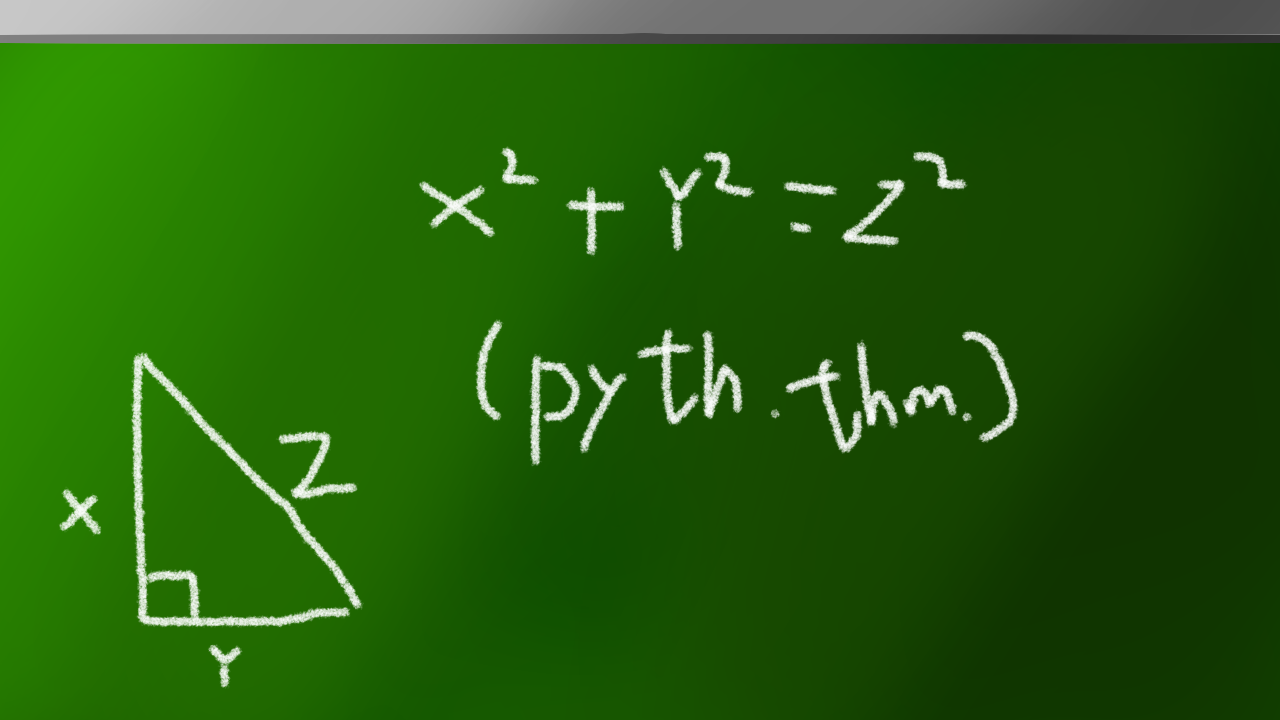 x² + Y² = Z²
(pyth. thm.)
Z
X
Y